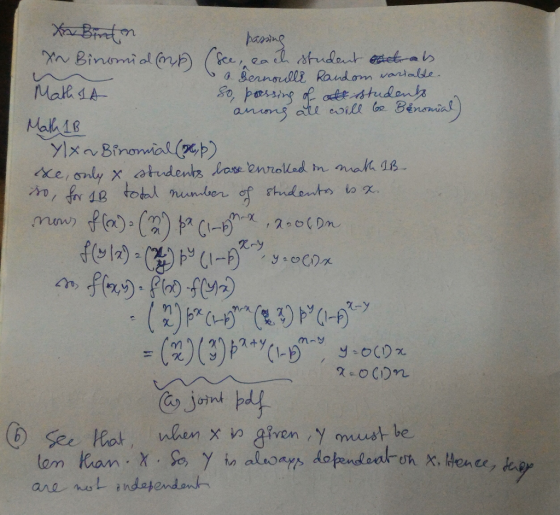 X~ Bin(n
X~ Binomial(n,p) (See, each student is passing
a Bernoulli Random variable.
Math 1A
So, passing of students
among all will be Binomial)
Math 1B
Y|X ~ Binomial(x,p)
see, only X students have enrolled in math 1B.
so, for 1B total number of students is x.
now, f(x) = (n x) p^x (1-p)^{n-x}, x=0(1)n
f(y|x) = (x y) p^y (1-p)^{x-y}, y=0(1)x
so f(x,y) = f(x)·f(y|x)
= (n x) p^x (1-p)^{n-x} (x y) p^y (1-p)^{x-y}
= (n x)(x y) p^{x+y} (1-p)^{n-y}, y=0(1)x
x=0(1)n
(a) joint pdf
(b) See that, when X is given, Y must be
less than X. So Y is always dependent on X. Hence, they
are not independent